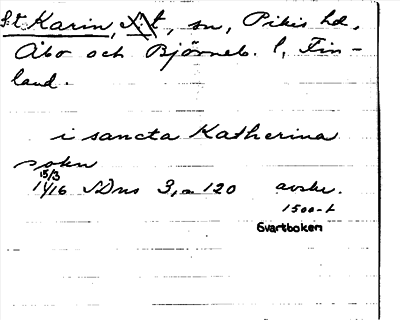 S:t Karin, sn, Pikis hd,
Åbo och Björneb. l, Fin-
land.
i sancta Katherina
sokn
15/3
1416 SDns 3, s 120 avskr.
1500-t
Svartboken